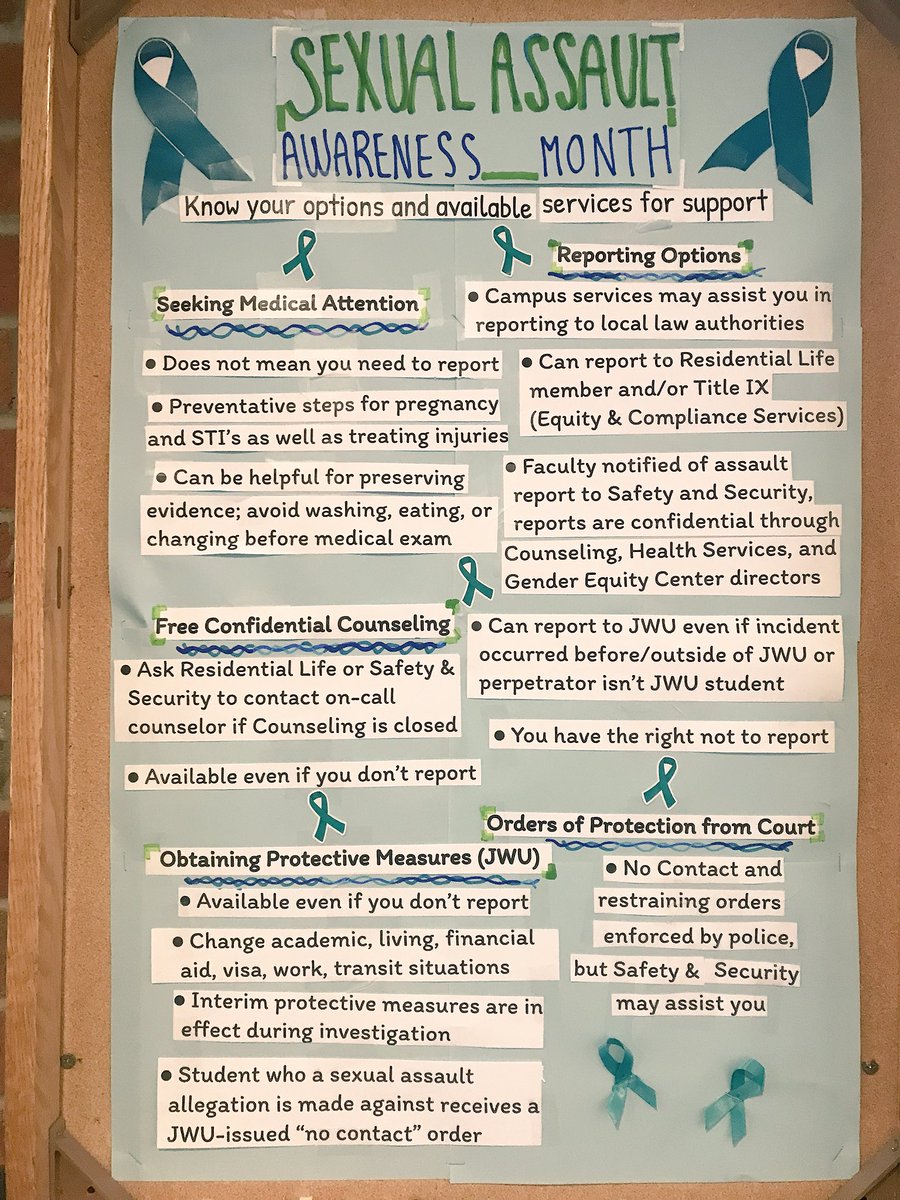 SEXUAL ASSAULT
AWARENESS MONTH
Know your options and available services for support
Seeking Medical Attention
● Does not mean you need to report
● Preventative steps for pregnancy
and STI's as well as treating injuries
● Can be helpful for preserving
evidence; avoid washing, eating, or
changing before medical exam
Free Confidential Counseling
● Ask Residential Life or Safety &
Security to contact on-call
counselor if Counseling is closed
● Available even if you don't report
Obtaining Protective Measures (JWU)
● Available even if you don't report
● Change academic, living, financial
aid, visa, work, transit situations
● Interim protective measures are in
effect during investigation
● Student who a sexual assault
allegation is made against receives a
JWU-issued "no contact" order
Reporting Options
● Campus services may assist you in
reporting to local law authorities
● Can report to Residential Life
member and/or Title IX
(Equity & Compliance Services)
● Faculty notified of assault
report to Safety and Security,
reports are confidential through
Counseling, Health Services, and
Gender Equity Center directors
● Can report to JWU even if incident
occurred before/outside of JWU or
perpetrator isn't JWU student
● You have the right not to report
Orders of Protection from Court
● No Contact and
restraining orders
enforced by police,
but Safety & Security
may assist you